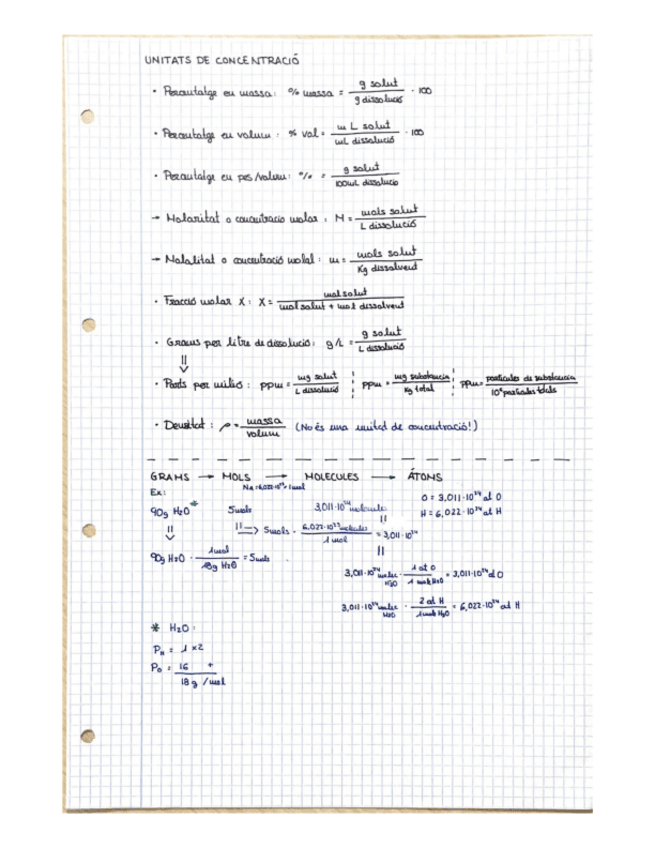 UNITATS DE CONCENTRACIÓ
• Percentatge en massa: % massa = g solut / g dissolució · 100
• Percentatge en volum: % vol = mL solut / mL dissolució · 100
• Percentatge en pes/volum: % = g solut / 100mL dissolucio
→ Molaritat o concentracio molar: M = mols solut / L dissolució
→ Molalitat o concentració molal: m = mols solut / Kg dissolvent
• Fracció molar X: X = mol solut / mol solut + mol dissolvent
• Grams per litre de dissolució: g/L = g solut / L dissolució
⇓
• Parts per milió: ppm = mg solut / L dissolució ¦ ppm = mg substancia / Kg total ¦ ppm = particules de substancia / 10⁶ particules totals
• Densitat: ρ = massa / volum (No és una unitat de concentració!)
GRAMS → MOLS → MOLECULES → ÀTOMS
Ex: NA = 6,022·10²³ = 1 mol
O = 3,011·10²⁴ at O
90g H2O * 5mols 3,011·10²⁴ molecules H = 6,022·10²⁴ at H
⇓ ⇒ 5mols · 6,022·10²³ molecules / 1 mol = 3,011·10²⁴
90g H2O · 1mol / 18g H2O = 5mols
3,011·10²⁴ molec H2O · 1 at O / 1 molec H2O = 3,011·10²⁴ at O
3,011·10²⁴ molec H2O · 2 at H / 1 molec H2O = 6,022·10²⁴ at H
* H2O:
PH = 1 x2
PO = 16 +
18 g/mol